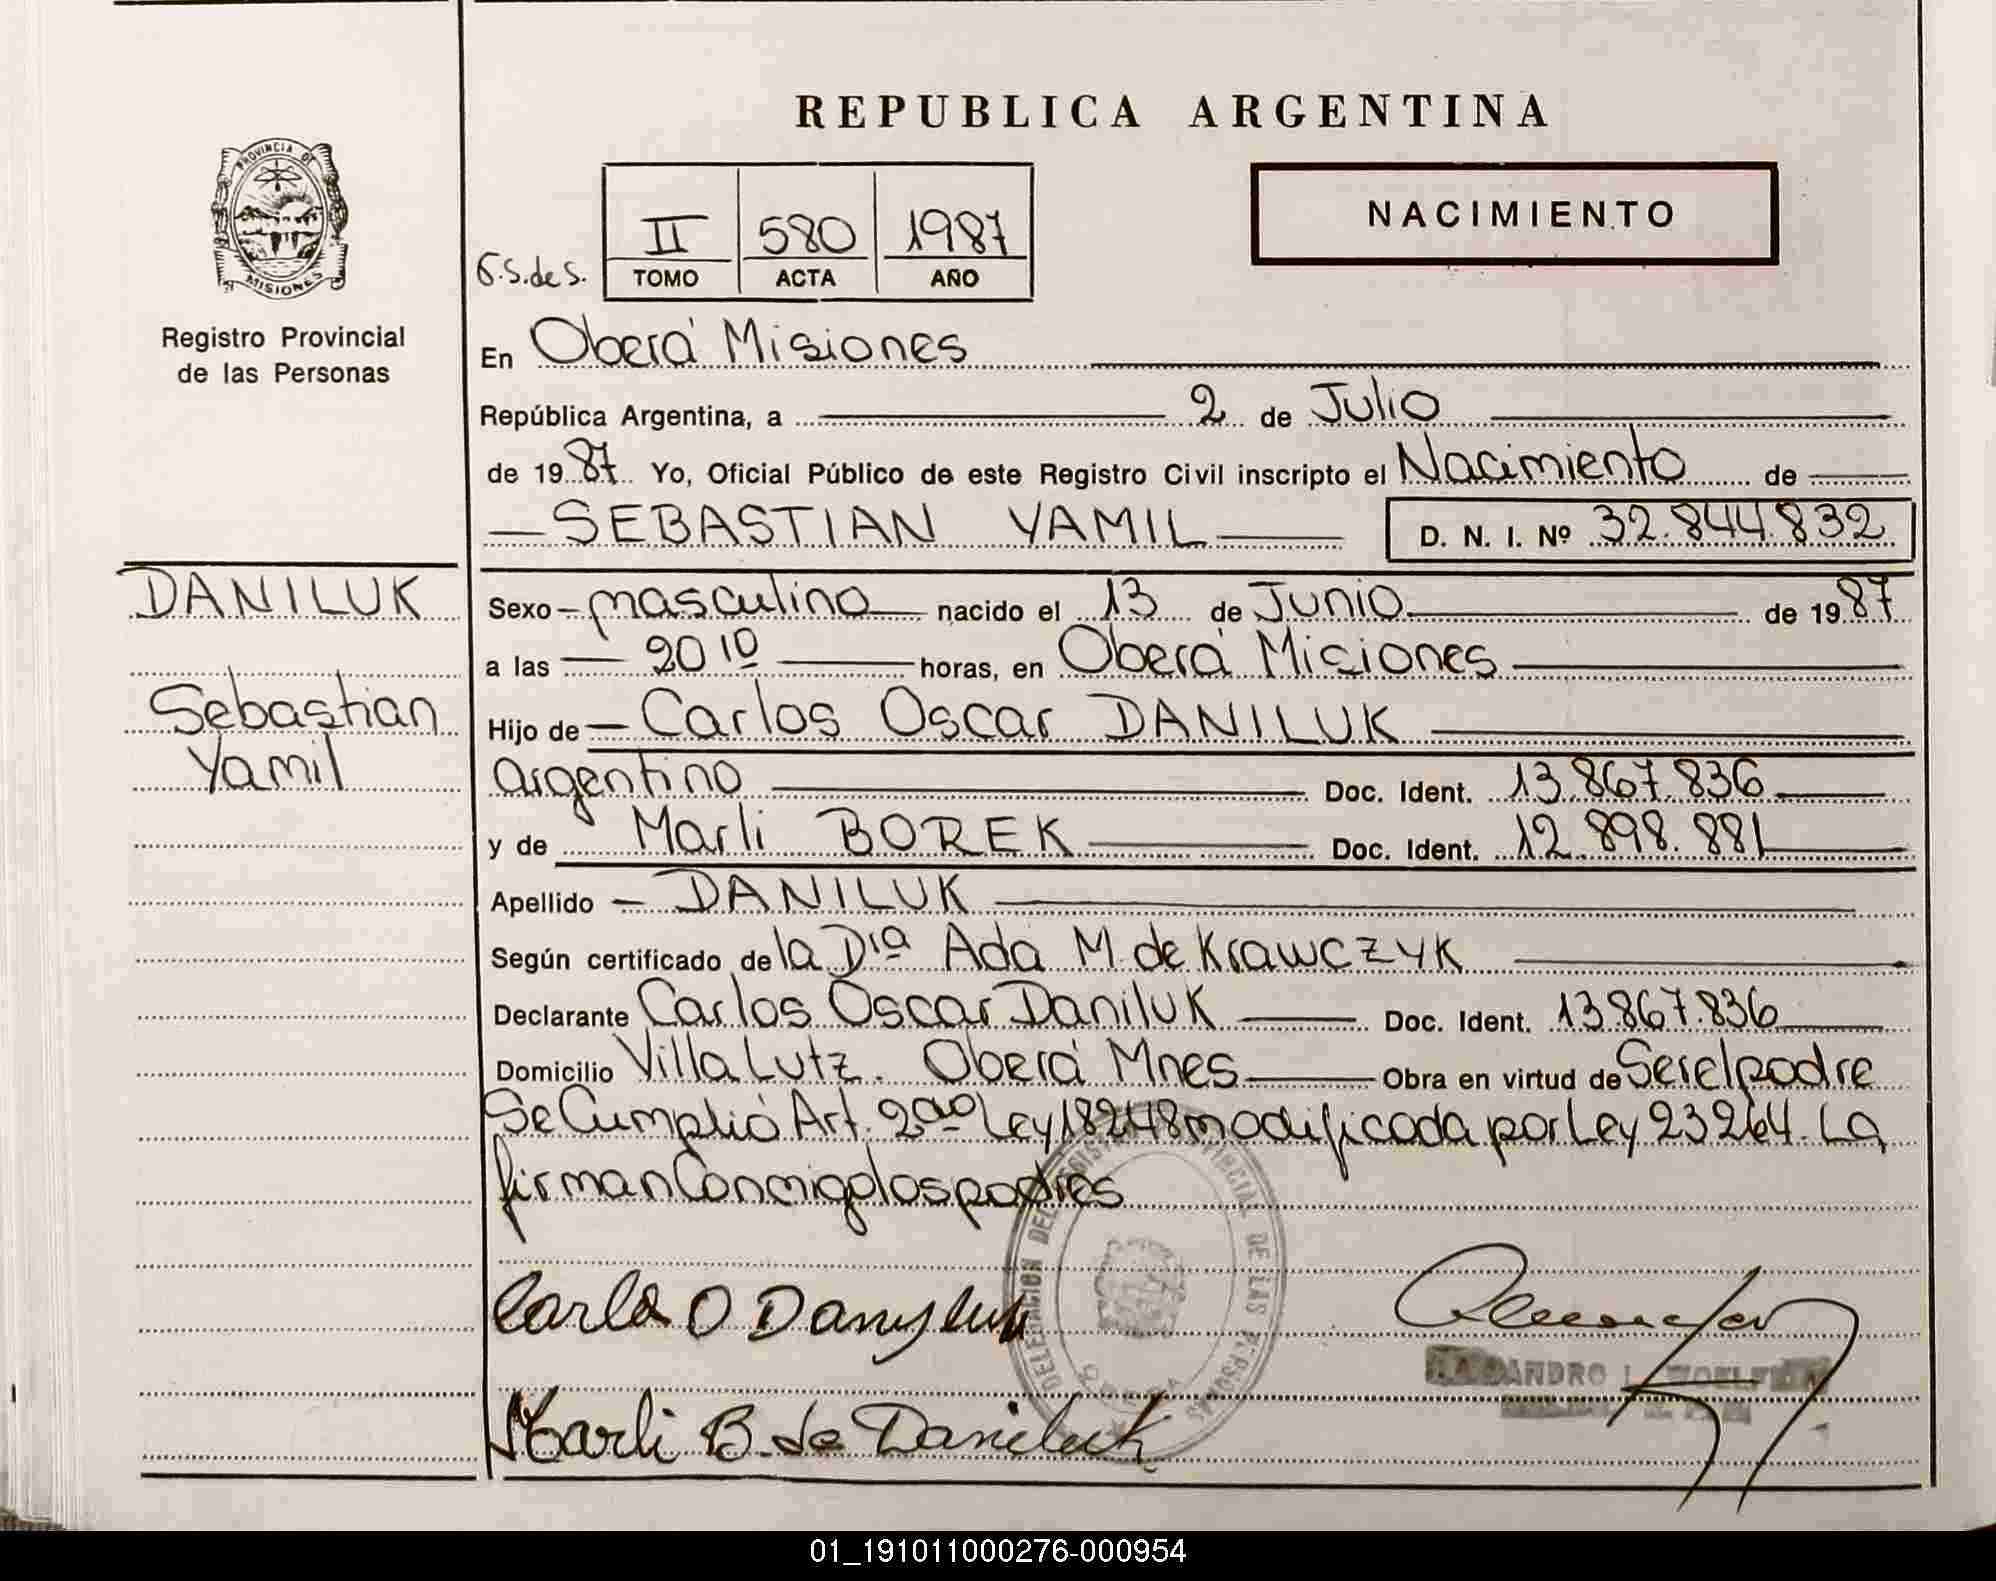 REPUBLICA ARGENTINA
PROVINCIA DE
MISIONES
Registro Provincial
de las Personas
II 580 1987
6.S.de S. TOMO ACTA AÑO
NACIMIENTO
En Oberá Misiones
República Argentina, a 2 de Julio
de 1987 Yo, Oficial Público de este Registro Civil inscripto el Nacimiento de
SEBASTIAN YAMIL D. N. I. Nº 32.844.832
DANILUK
Sebastian
Yamil
Sexo masculino nacido el 13 de Junio de 1987
a las 20 10 horas, en Oberá Misiones
Hijo de Carlos Oscar DANILUK
argentino Doc. Ident. 13.867.836
y de Marli BOREK Doc. Ident. 12.898.881
Apellido DANILUK
Según certificado de la Dra Ada M. de Krawczyk
Declarante Carlos Oscar Daniluk Doc. Ident. 13.867.836
Domicilio Villa Lutz. Oberá Mnes Obra en virtud de Ser el padre
Se Cumplió Art. 2do Ley 18248 modificada por Ley 23264. La
firman Conmigo los padres
DELEGACION DEL REGISTRO PROVINCIAL DE LAS PERSONAS
Carlos O Danyluk
Marli B. de Daniluk
01_191011000276-000954